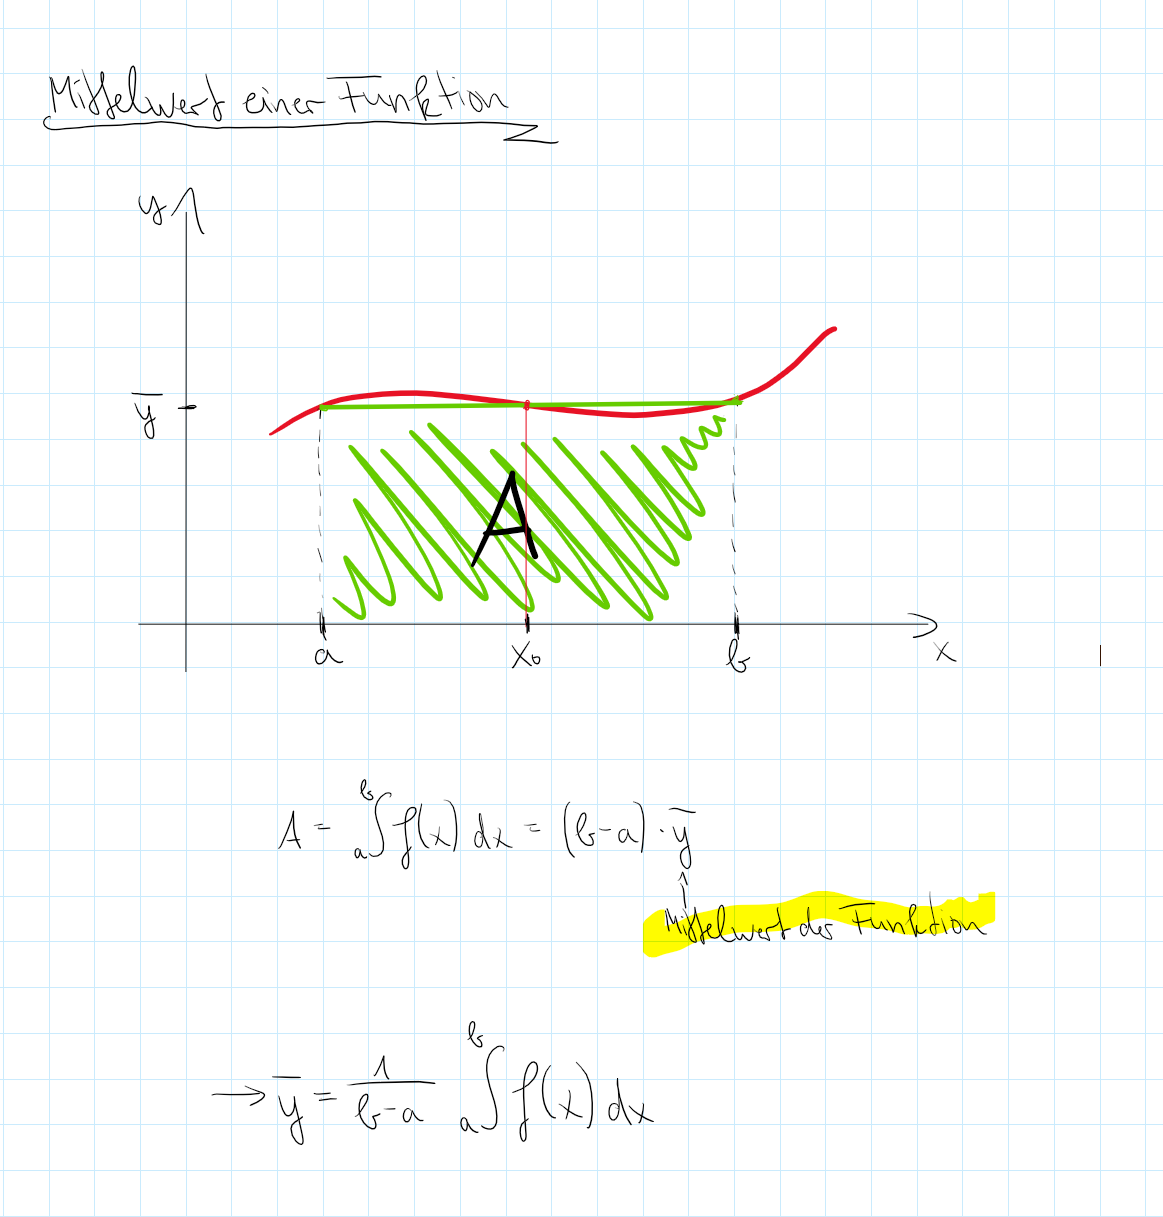 Mittelwert einer Funktion
y
ȳ
A
a x₀ b x
A = ₐ∫ᵇ f(x) dx = (b-a) · ȳ
⇑
Mittelwert der Funktion
→ ȳ = 1/(b-a) ₐ∫ᵇ f(x) dx